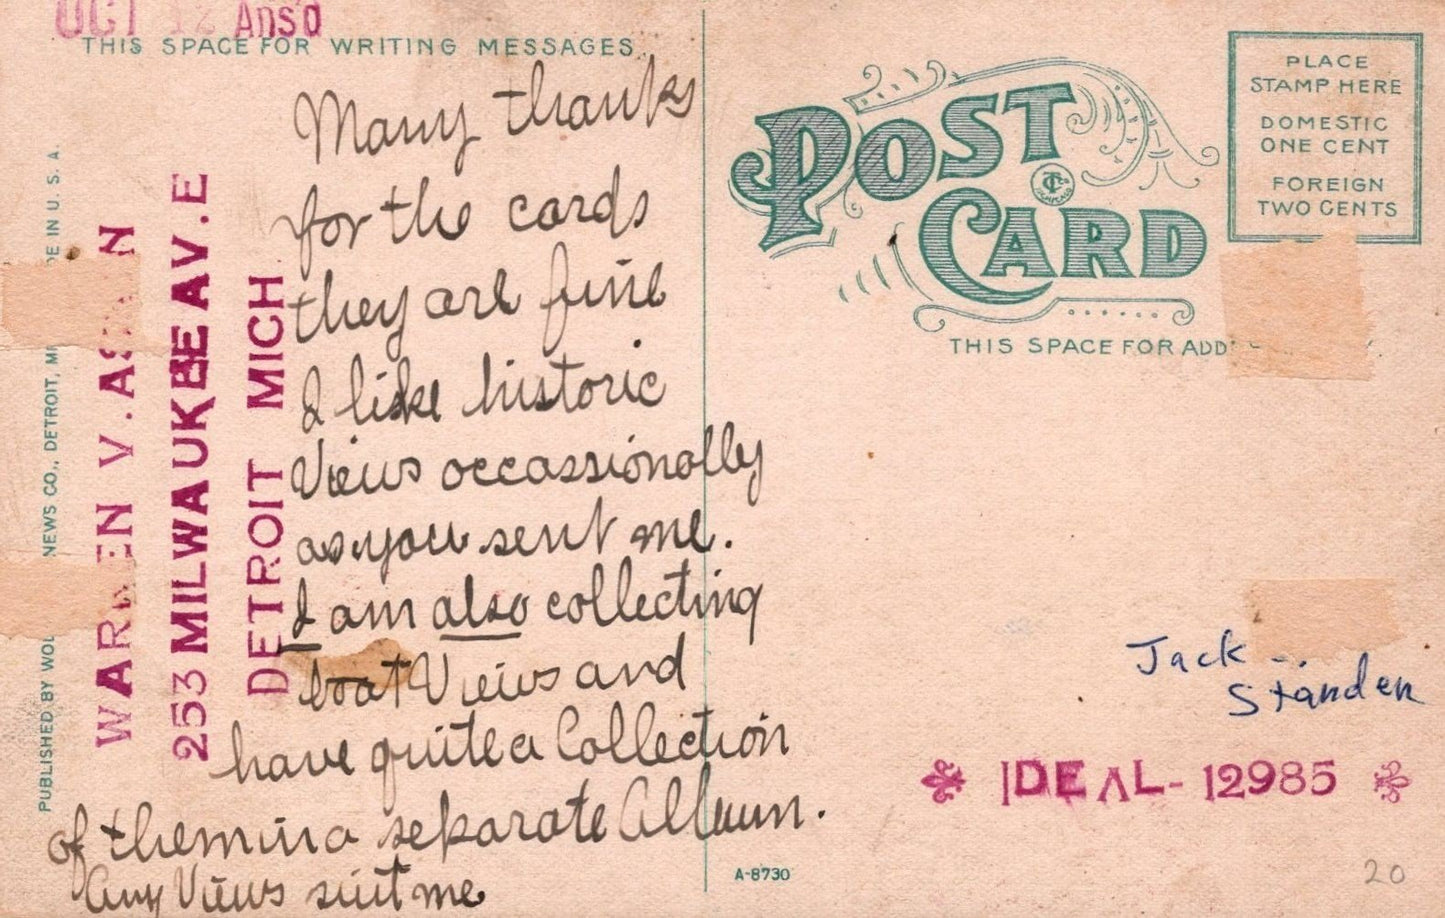 OCT 12 Ansd
THIS SPACE FOR WRITING MESSAGES
Many thanks
for the cards
they are fine
I like historic
Views occassionally
as you sent me.
I am also collecting
boat Views and
have quite a Collection
of them in a separate Album.
Any Views suit me
WARREN V.
253 MILWAUKEE AV.E
DETROIT MICH
PUBLISHED BY
NEWS CO., DETROIT,
U. S. A.
POST CARD
THIS SPACE FOR
PLACE
STAMP HERE
DOMESTIC
ONE CENT
FOREIGN
TWO CENTS
Jack
Standen
IDEAL-12985
A-8730
20